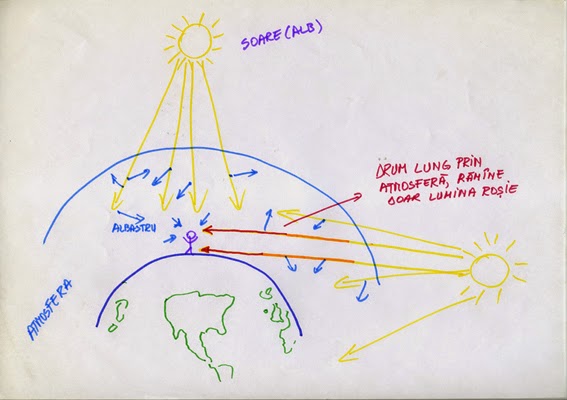 SOARE (ALB)
DRUM LUNG PRIN
ATMOSFERĂ, RĂMÎNE
DOAR LUMINA ROȘIE
ALBASTRU
ATMOSFERA